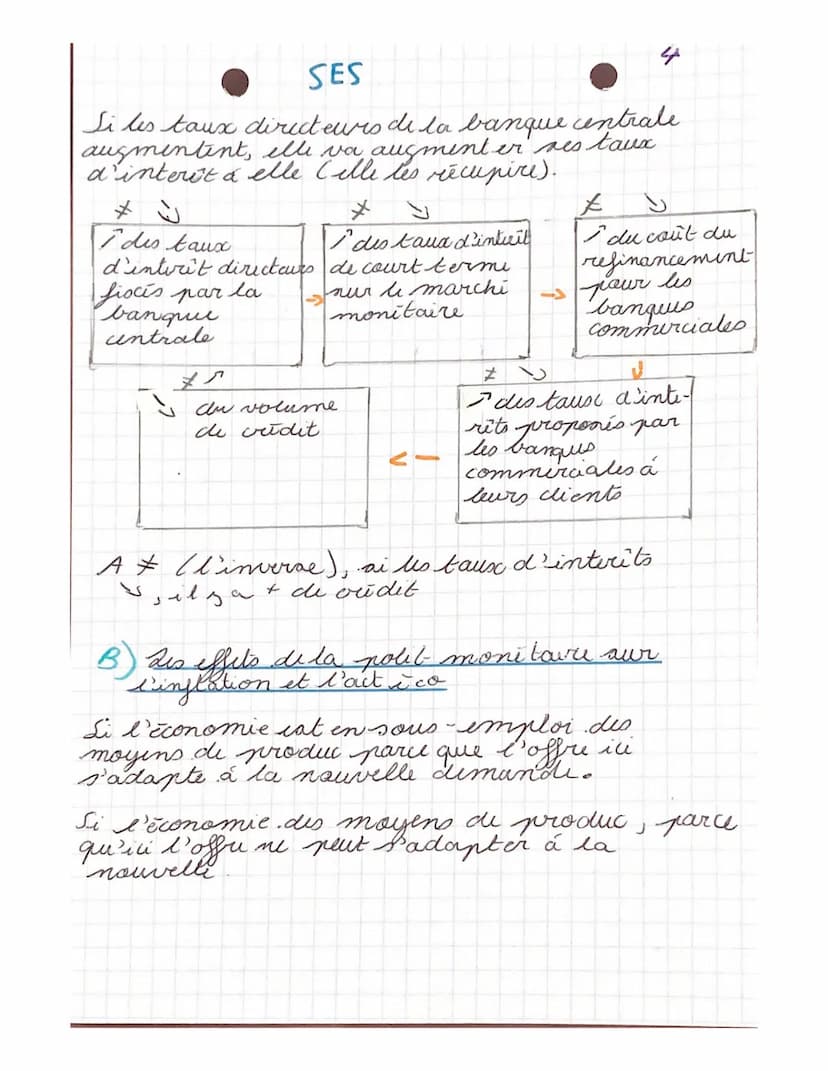 4
SES
Si les taux directeurs de la banque centrale
augmentent, elle va augmenter ses taux
d'interêt à elle (elle les récupère).
≠ ↘
↗ des taux
d'interêt directeurs
fixés par la
banque
centrale
→
≠ ↘
↗ des taux d'interêt
de court terme
sur le marché
monétaire
→
≠ ↘
↗ du coût du
refinancement
pour les
banques
commerciales
↓
≠ ↘
↗ des taux d'inte-
rêts proposés par
les banques
commerciales à
leurs clients
←
≠ ↗
↘ du volume
de crédit
A ≠ (l'inverse), si les taux d'interêts
↘, il y a + de crédit
B) Les effets de la polit monétaire sur
l'inflation et l'act éco
Si l'économie est en sous-emploi des
moyens de produc parce que l'offre ici
s'adapte à la nouvelle demande.
Si l'économie des moyens de produc, parce
qu'ici l'offre ne peut s'adapter à la
nouvelle